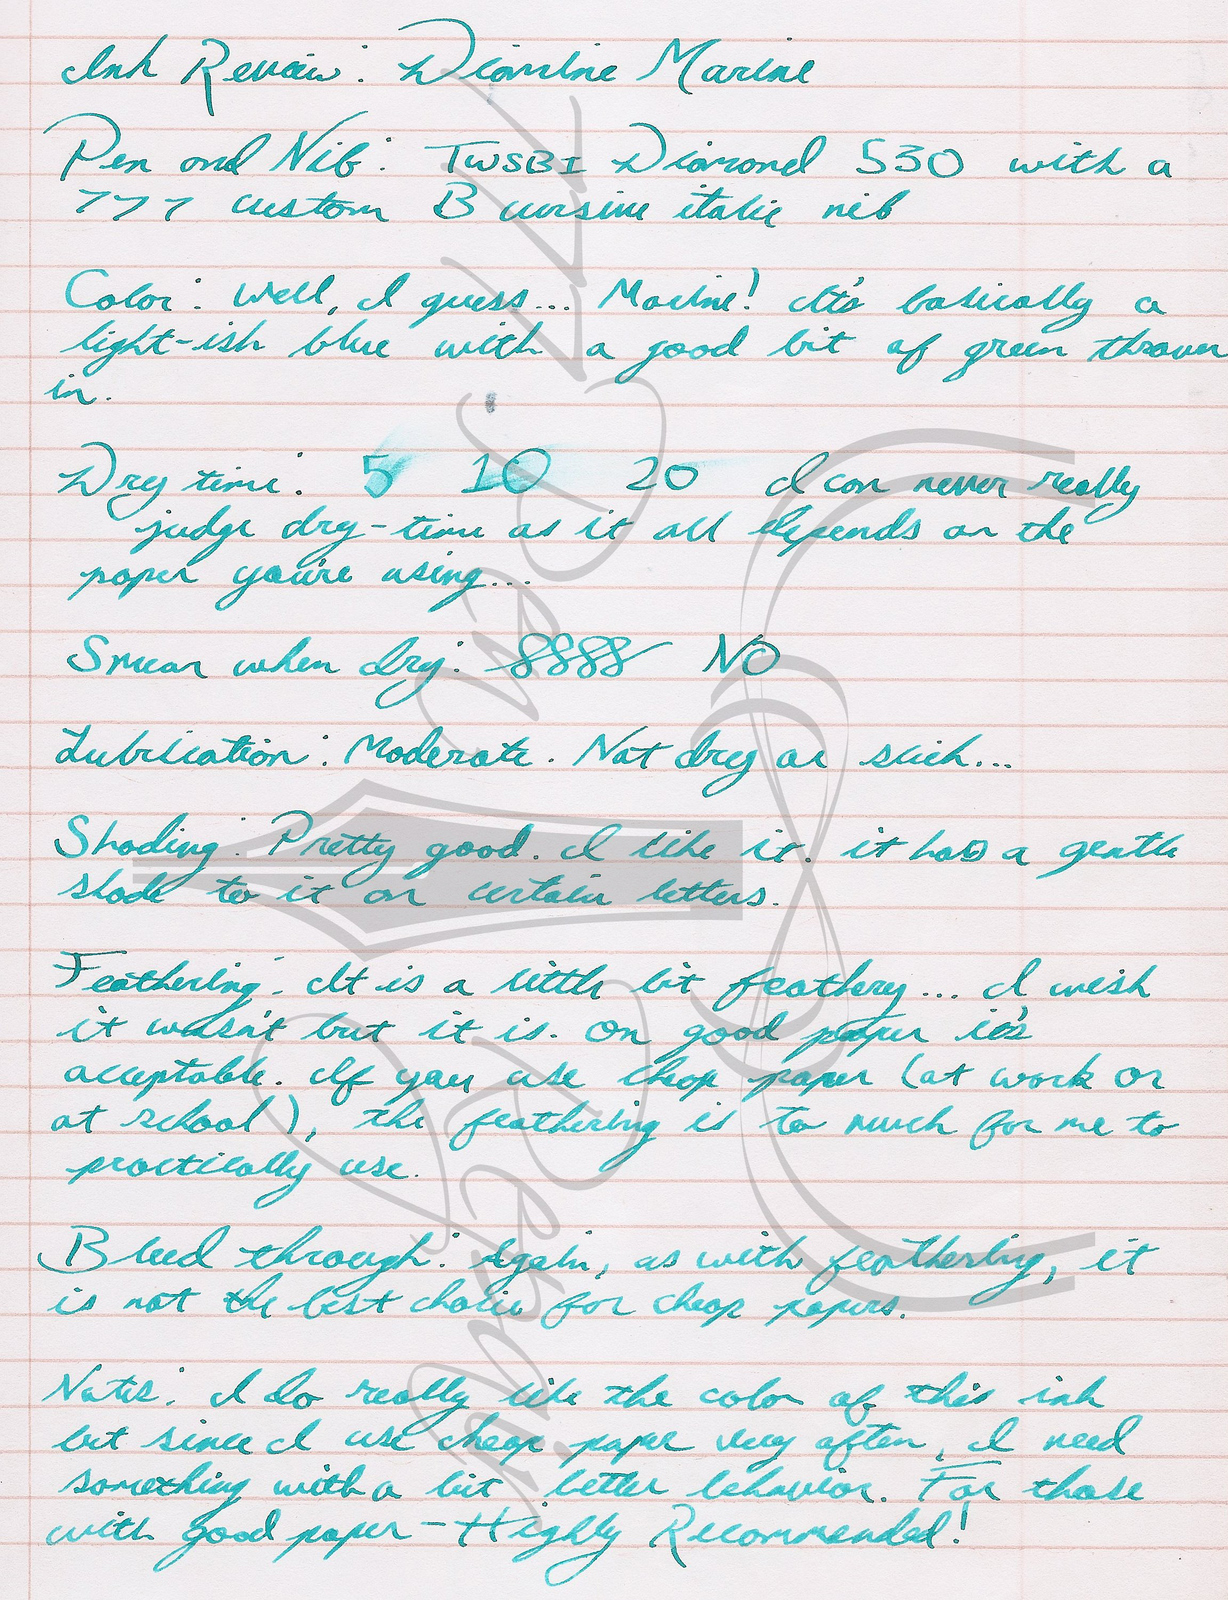 Ink Review: Diamine Marine
Pen and Nib: TWSBI Diamond 530 with a
777 custom B cursive italic nib
Color: Well, I guess... Marine! It's basically a
light-ish blue with a good bit of green thrown
in.
Dry time: 5 10 20 I can never really
judge dry-time as it all depends on the
paper you're using...
Smear when dry: NO
Lubrication: Moderate. Not dry or slick...
Shading: Pretty good. I like it. it has a gentle
shade to it on certain letters.
Feathering: It is a little bit feathery... I wish
it wasn't but it is. On good paper it's
acceptable. If you use cheap paper (at work or
at school), the feathering is to much for me to
practically use.
Bleed through: Again, as with feathering, it
is not the best choice for cheap papers.
Notes: I do really like the color of this ink
but since I use cheap paper very often, I need
something with a bit better behavior. For those
with good paper - Highly Recommended!